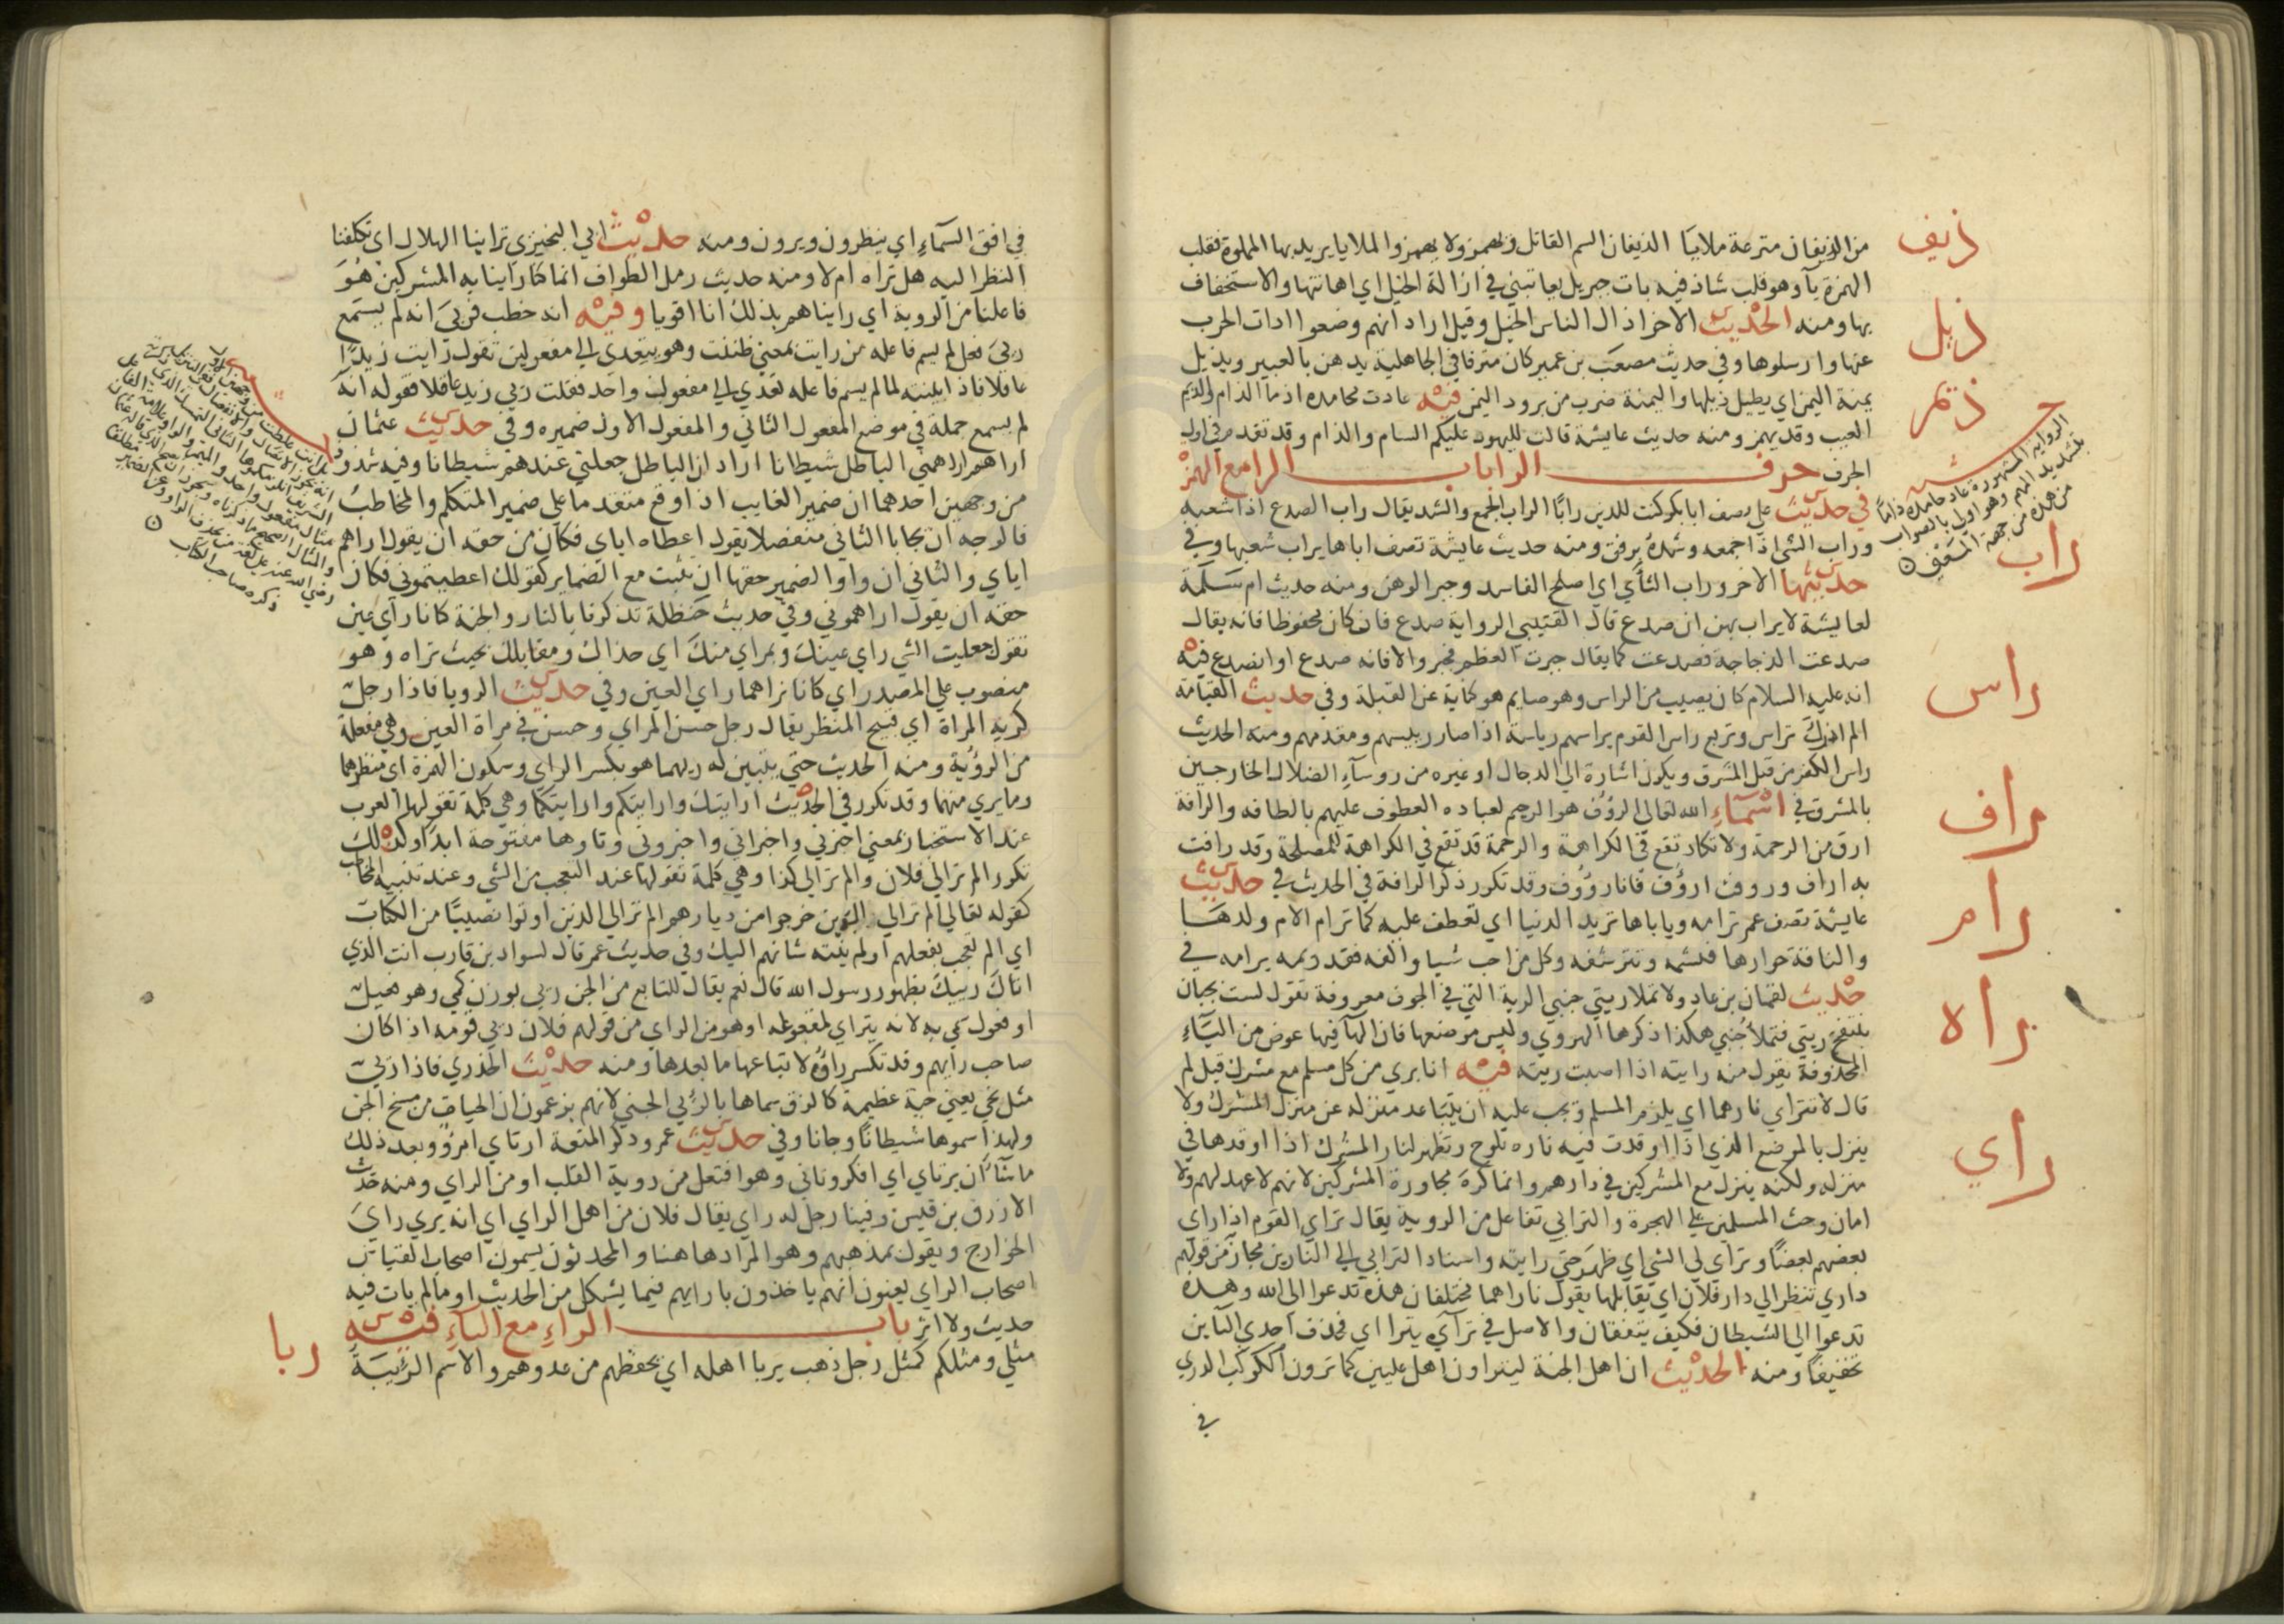 من الذيفان مترعة ملايا الذيفان السم القاتل ويهمز ولا يهمز والملايا يريد بها المملوة فقلب
الهمزة يآ وهو قلب شاذ فيه بات جبريل يعاتبني في اذالة الخيل اي اهانتها والاستخفاف
بها ومنه الحديث الاخر اذال الناس الخيل وقيل اراد انهم وضعوا ادات الحرب
عنها وارسلوها وفي حديث مصعب بن عمير كان مترفا في الجاهلية يدهن بالعبير ويذيل
يمنة اليمن اي يطيل ذيلها واليمنة ضرب من برود اليمن فيه عادت محامده اذما الذام والذيم
العيب وقد يهمز ومنه حديث عايشة قالت لليهود عليكم السام والذام وقد تقدم في اول
الحرف حرف الراباب الرا مع الهمز
في حديث علي يصف ابابكر كنت للدين رابًا الراب الجمع والشد يقال راب الصدع اذا شعبه
وراب الشي اذا جمعه وشده برفق ومنه حديث عايشة تصف اباها يراب شعبها وفي
حديثها الاخر وراب الثأي اي اصلح الفاسد وجبر الوهن ومنه حديث ام سلمة
لعايشة لا يراب بهن ان صدع قال القتيبي الرواية صدع فان كان محفوظا فانه يقال
صدعت الزجاجة فصدعت كما يقال جبرت العظم فجبر والا فانه صدع او انصدع فيه
انه عليه السلام كان يصيب من الراس وهو صايم هو كناية عن القبلة وفي حديث القيامة
الم اذرك تراس وتربع راس القوم يراسهم رياسة اذا صار رييسهم ومقدمهم ومنه الحديث
راس الكفر من قبل المشرق ويكون اشارة الي الدجال او غيره من روسآء الضلال الخارجين
بالمشرق في اسمآء الله تعالي الرؤف هو الرحيم لعباده العطوف عليهم بالطافه والرافة
ارق من الرحمة ولا تكاد تقع في الكراهة والرحمة قد تقع في الكراهة للمصلحة وقد رافت
به اراف وروفت ارؤف فانا رؤوف وقد تكرر ذكر الرافة في الحديث في حديث
عايشة تصف عمر ترامه وياباها تريد الدنيا اي تعطف عليه كما ترام الام ولدها
والناقة حوارها فتشمه وتترشفه وكل من احب شيا والفه فقد ريمه يرامه في
حديث لقمان بن عاد ولا تملا ريتي جنبي الرية التي في الجوف معروفة تقول لست بجبان
تنتفخ ريتي فتملأ جنبي هكذا ذكرها الهروي وليس موضعها فان الهآ فيها عوض من اليآء
المحذوفة تقول منه رايته اذا اصبت ريته فيه انا بري من كل مسلم مع مشرك قيل لم
قال لا تتراي نارهما اي يلزم المسلم ويجب عليه ان يتباعد منزله عن منزل المشرك ولا
ينزل بالموضع الذي اذا اوقدت فيه ناره تلوح وتظهر لنار المشرك اذا اوقدها في
منزله ولكنه ينزل مع المشركين في دارهم وانما كره مجاورة المشركين لانهم لا عهد لهم ولا
امان وحث المسلمين علي الهجرة والترايي تفاعل من الروية يقال تراي القوم اذا راي
بعضهم بعضًا وتراي لي الشي اي ظهر حتي رايته واسناد الترايي الي النارين مجاز من قولهم
داري تنظر الي دار فلان اي يقابلها يقول ناراهما مختلفان هذه تدعوا الي الله وهذه
تدعوا الي الشيطان فكيف يتفقان والاصل في تراي يترا اي فحذف احدي التآين
تخفيفًا ومنه الحديث ان اهل الجنة ليتراون اهل عليين كما ترون الكوكب الدري
في
ذيف
ذيل
ذيم
الرواية المشهورة عاد حامده ذامًا
بتشديد الميم وهو اولي بالصواب
من هذه من جهة المعني
راب
راس
راف
رام
راه
راي
في افق السمآء اي ينظرون ويرون ومنه حديث ابي البختري تراينا الهلال اي تكلفنا
النظر اليه هل نراه ام لا ومنه حديث رمل الطواف انما كنا راينا به المشركين هو
فاعلنا من الروية اي رايناهم بذلك انا اقويا وفيه انه خطب فريي انه لم يسمع
ريي فعل لم يسم فاعله من رايت بمعني ظننت وهو يتعدي الي مفعولين تقول رايت زيدًا
عاقلا فاذا بنيته لما لم يسم فاعله تعدي الي مفعول واحد فقلت ريي زيد عاقلا فقوله انه
لم يسمع جملة في موضع المفعول الثاني والمفعول الاول ضميره وفي حديث عثمان
اراهم اراهمني الباطل شيطانا اراد ان الباطل جعلني عندهم شيطانا وفيه شذوذ
من وجهين احدهما ان ضمير الغايب اذا وقع متقدما علي ضمير المتكلم والمخاطب
فالوجه ان يجا بالثاني منفصلا يقول اعطاه اياي فكان من حقه ان يقول اراهم
اياي والثاني ان واو الضمير حقها ان يثبت مع الضماير كقولك اعطيتموني فكان
حقه ان يقول اراهموني وفي حديث حنظلة تذكرنا بالنار والجنة كانا راي عين
تقول جعلت الشي راي عينك وبمراي منك اي حذاك ومقابلك بحيث تراه وهو
منصوب علي المصدر اي كانا نراهما راي العين وفي حديث الرويا فاذا رجل
كريه المراة اي قبيح المنظر يقال رجل حسن المراي وحسن في مراة العين وهي مفعلة
من الرؤية ومنه الحديث حتي يتبين له ريهما هو بكسر الراي وسكون الهمزة اي منظرهما
وما يري منهما وقد تكرر في الحديث ارايتك وارايتكم وارايتكما وهي كلمة تقولها العرب
عند الاستخبار بمعني اخبرني واخبراني واخبروني وتاوها مفتوحة ابدا وكذلك
تكرر الم تر الي فلان والم تر الي كذا وهي كلمة تقولها عند التعجب من الشي وعند تنبيه المخاطب
كقوله تعالي الم تر الي الذين خرجوا من ديارهم الم تر الي الذين اوتوا نصيبًا من الكتاب
اي الم تعجب بفعلهم اولم ينته شانهم اليك وفي حديث عمر قال لسواد بن قارب انت الذي
اتاك رييك بظهور رسول الله قال نعم يقال للتابع من الجن ريي بوزن كمي وهو فعيل
او فعول سمي به لانه يتراي لمتبوعه او هو من الراي من قولهم فلان ريي قومه اذا كان
صاحب رايهم وقد تكسر راؤه لاتباعها ما بعدها ومنه حديث الخدري فاذا ريي
مثل نحي يعني حية عظيمة كالزق سماها بالرئي الجني لانهم يزعمون ان الحيات من مسخ الجن
ولهذا سموها شيطانًا وجانا وفي حديث عمر وذكر المتعة ارتاي امرؤ وبعد ذلك
ما شآ ان يرتاي اي افكر وتاني وهو افتعل من روية القلب او من الراي ومنه حديث
الازرق بن قيس وفينا رجل له راي يقال فلان من اهل الراي اي انه يري راي
الخوارج ويقول بمذهبهم وهو المراد هاهنا والمحدثون يسمون اصحاب القياس
اصحاب الراي يعنون انهم ياخذون بارايهم فيما يشكل من الحديث او ما لم يات فيه
حديث ولا اثر باب الراء مع البآء فيه
مثلي ومثلكم كمثل رجل ذهب يربا اهله اي يحفظهم من عدوهم والاسم الربيئة
ربا